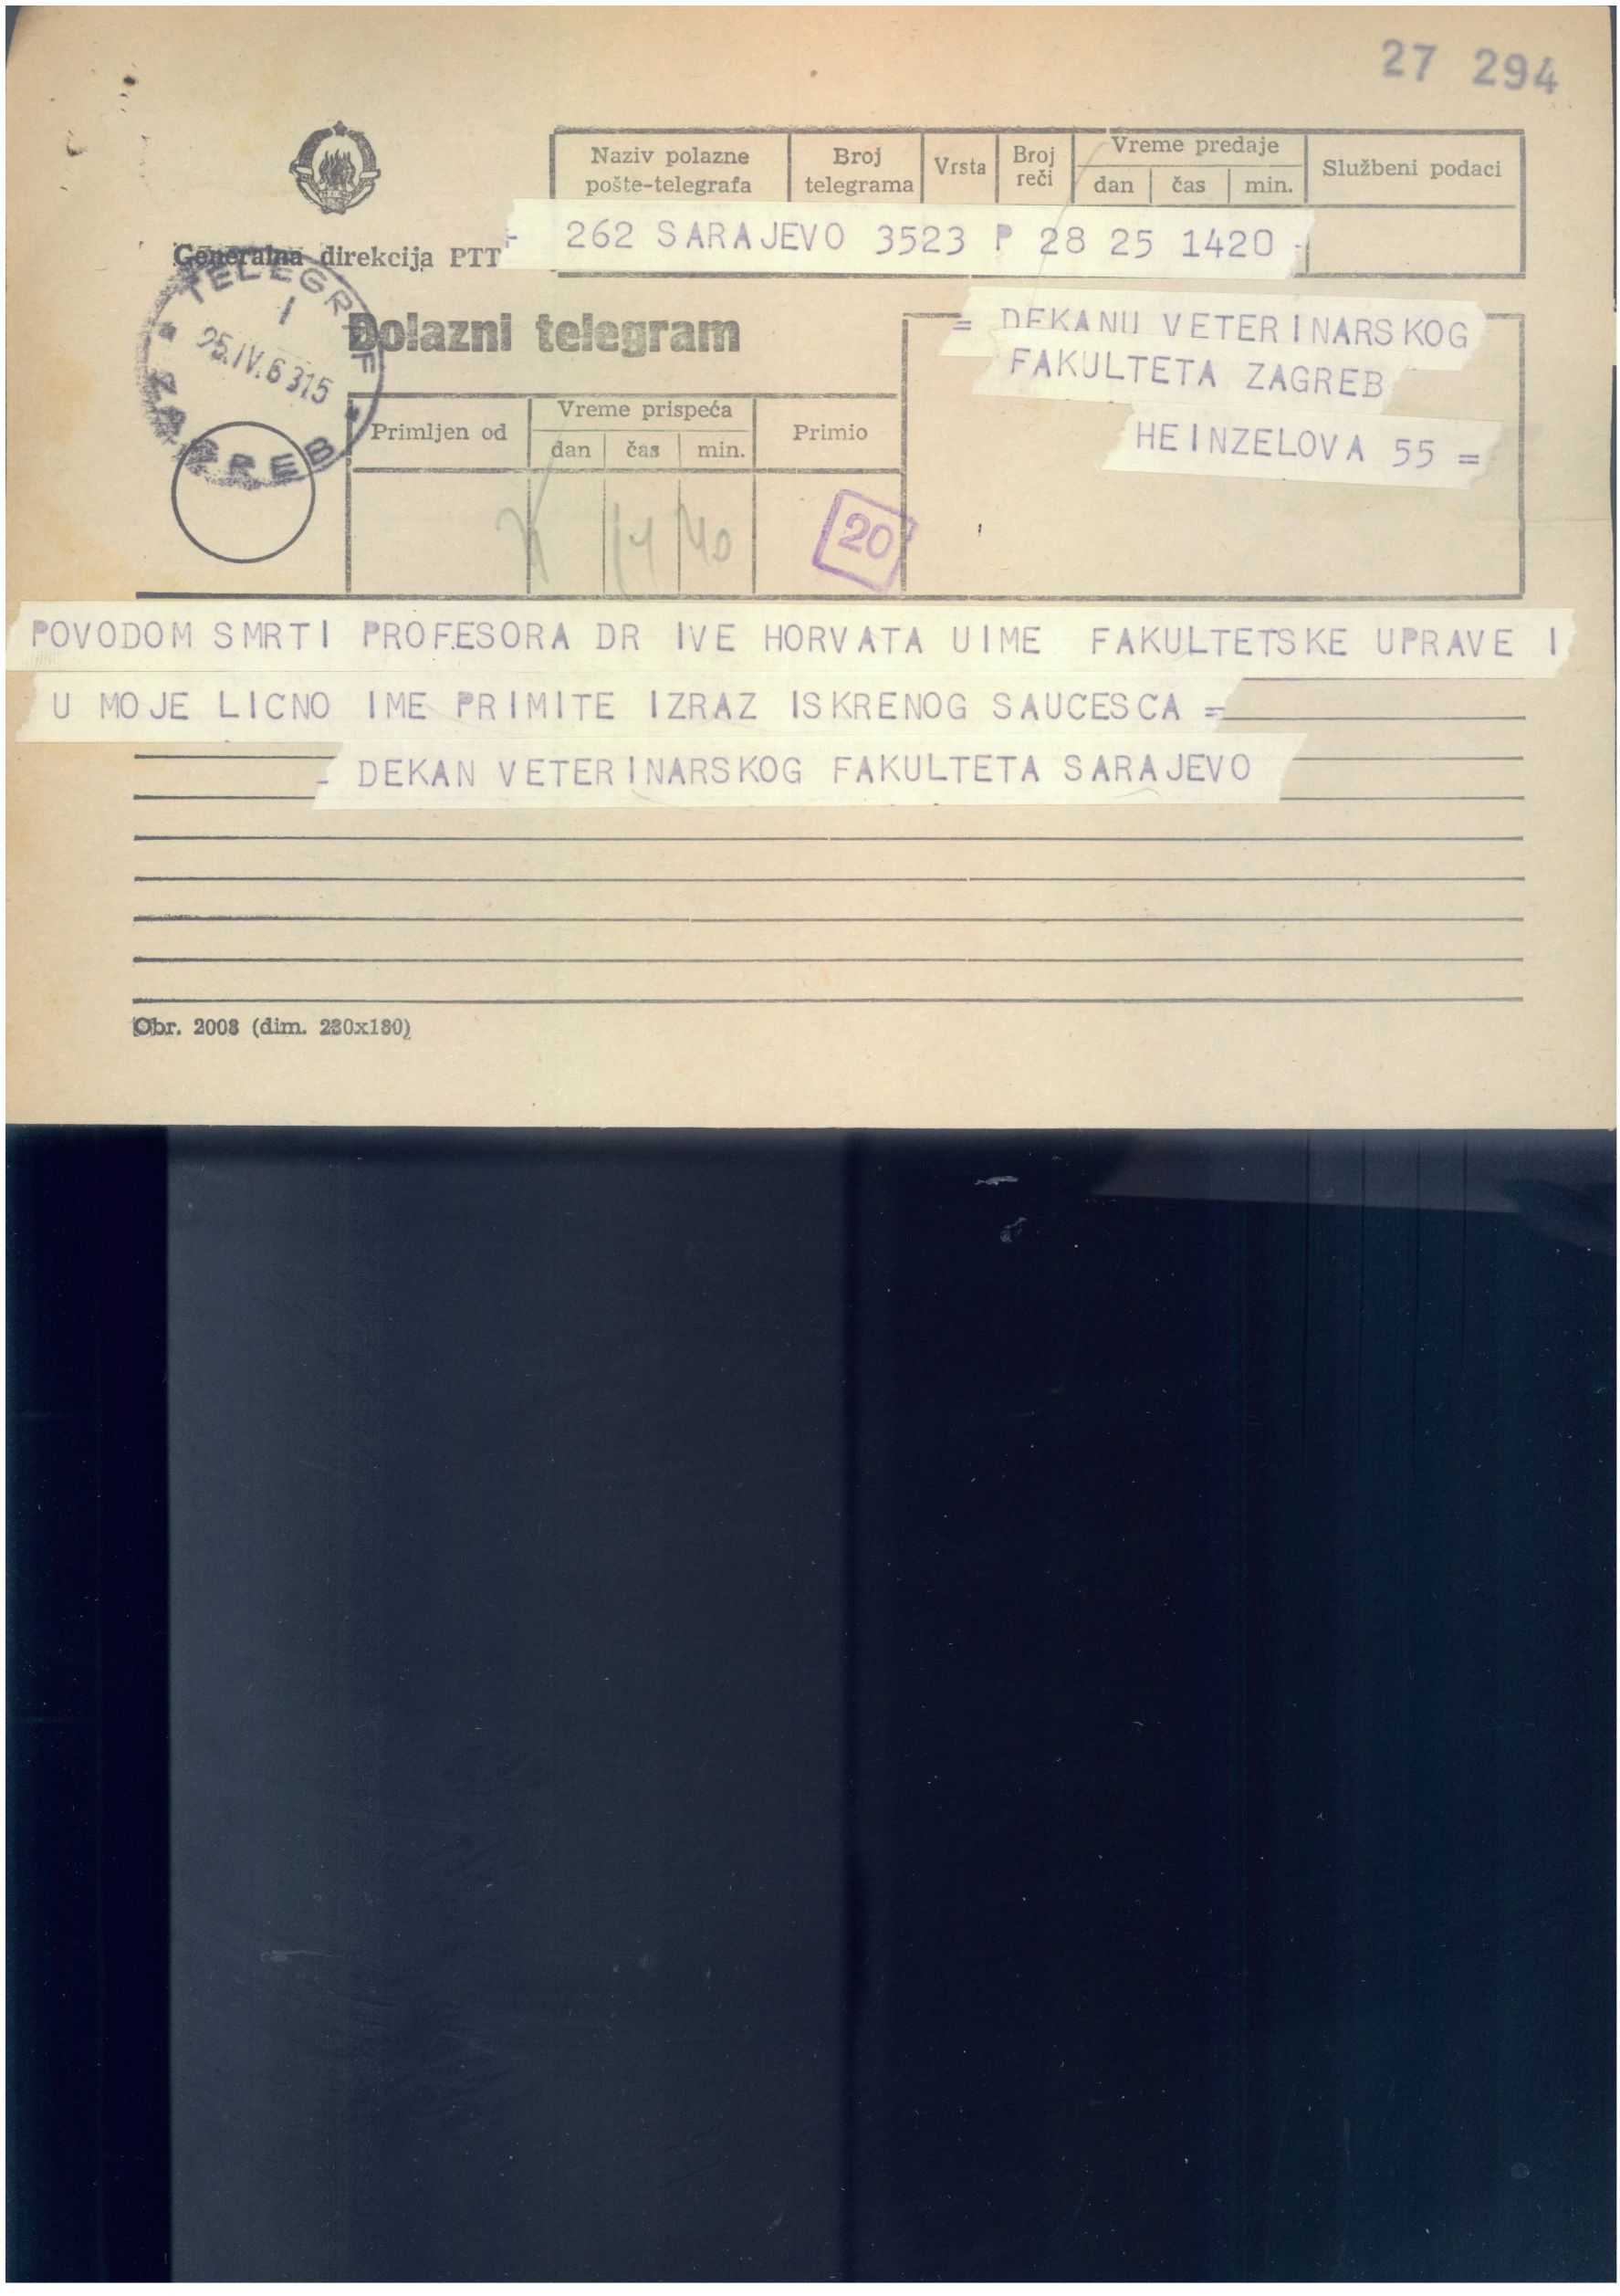 27 294
Naziv polazne pošte-telegrafa
Broj telegrama
Vrsta
Broj reči
Vreme predaje
dan čas min.
Službeni podaci
Generalna direkcija PTT
262 SARAJEVO 3523 P 28 25 1420 -
TELEGRAF
1
25.IV.6315
ZAGREB
Dolazni telegram
= DEKANU VETERINARSKOG
FAKULTETA ZAGREB
HEINZELOVA 55 =
Primljen od
Vreme prispeća
dan čas min.
Primio
14 40
20
POVODOM SMRTI PROFESORA DR IVE HORVATA UIME FAKULTETSKE UPRAVE I
U MOJE LICNO IME PRIMITE IZRAZ ISKRENOG SAUCESCA =
- DEKAN VETERINARSKOG FAKULTETA SARAJEVO
Obr. 2008 (dim. 230x180)